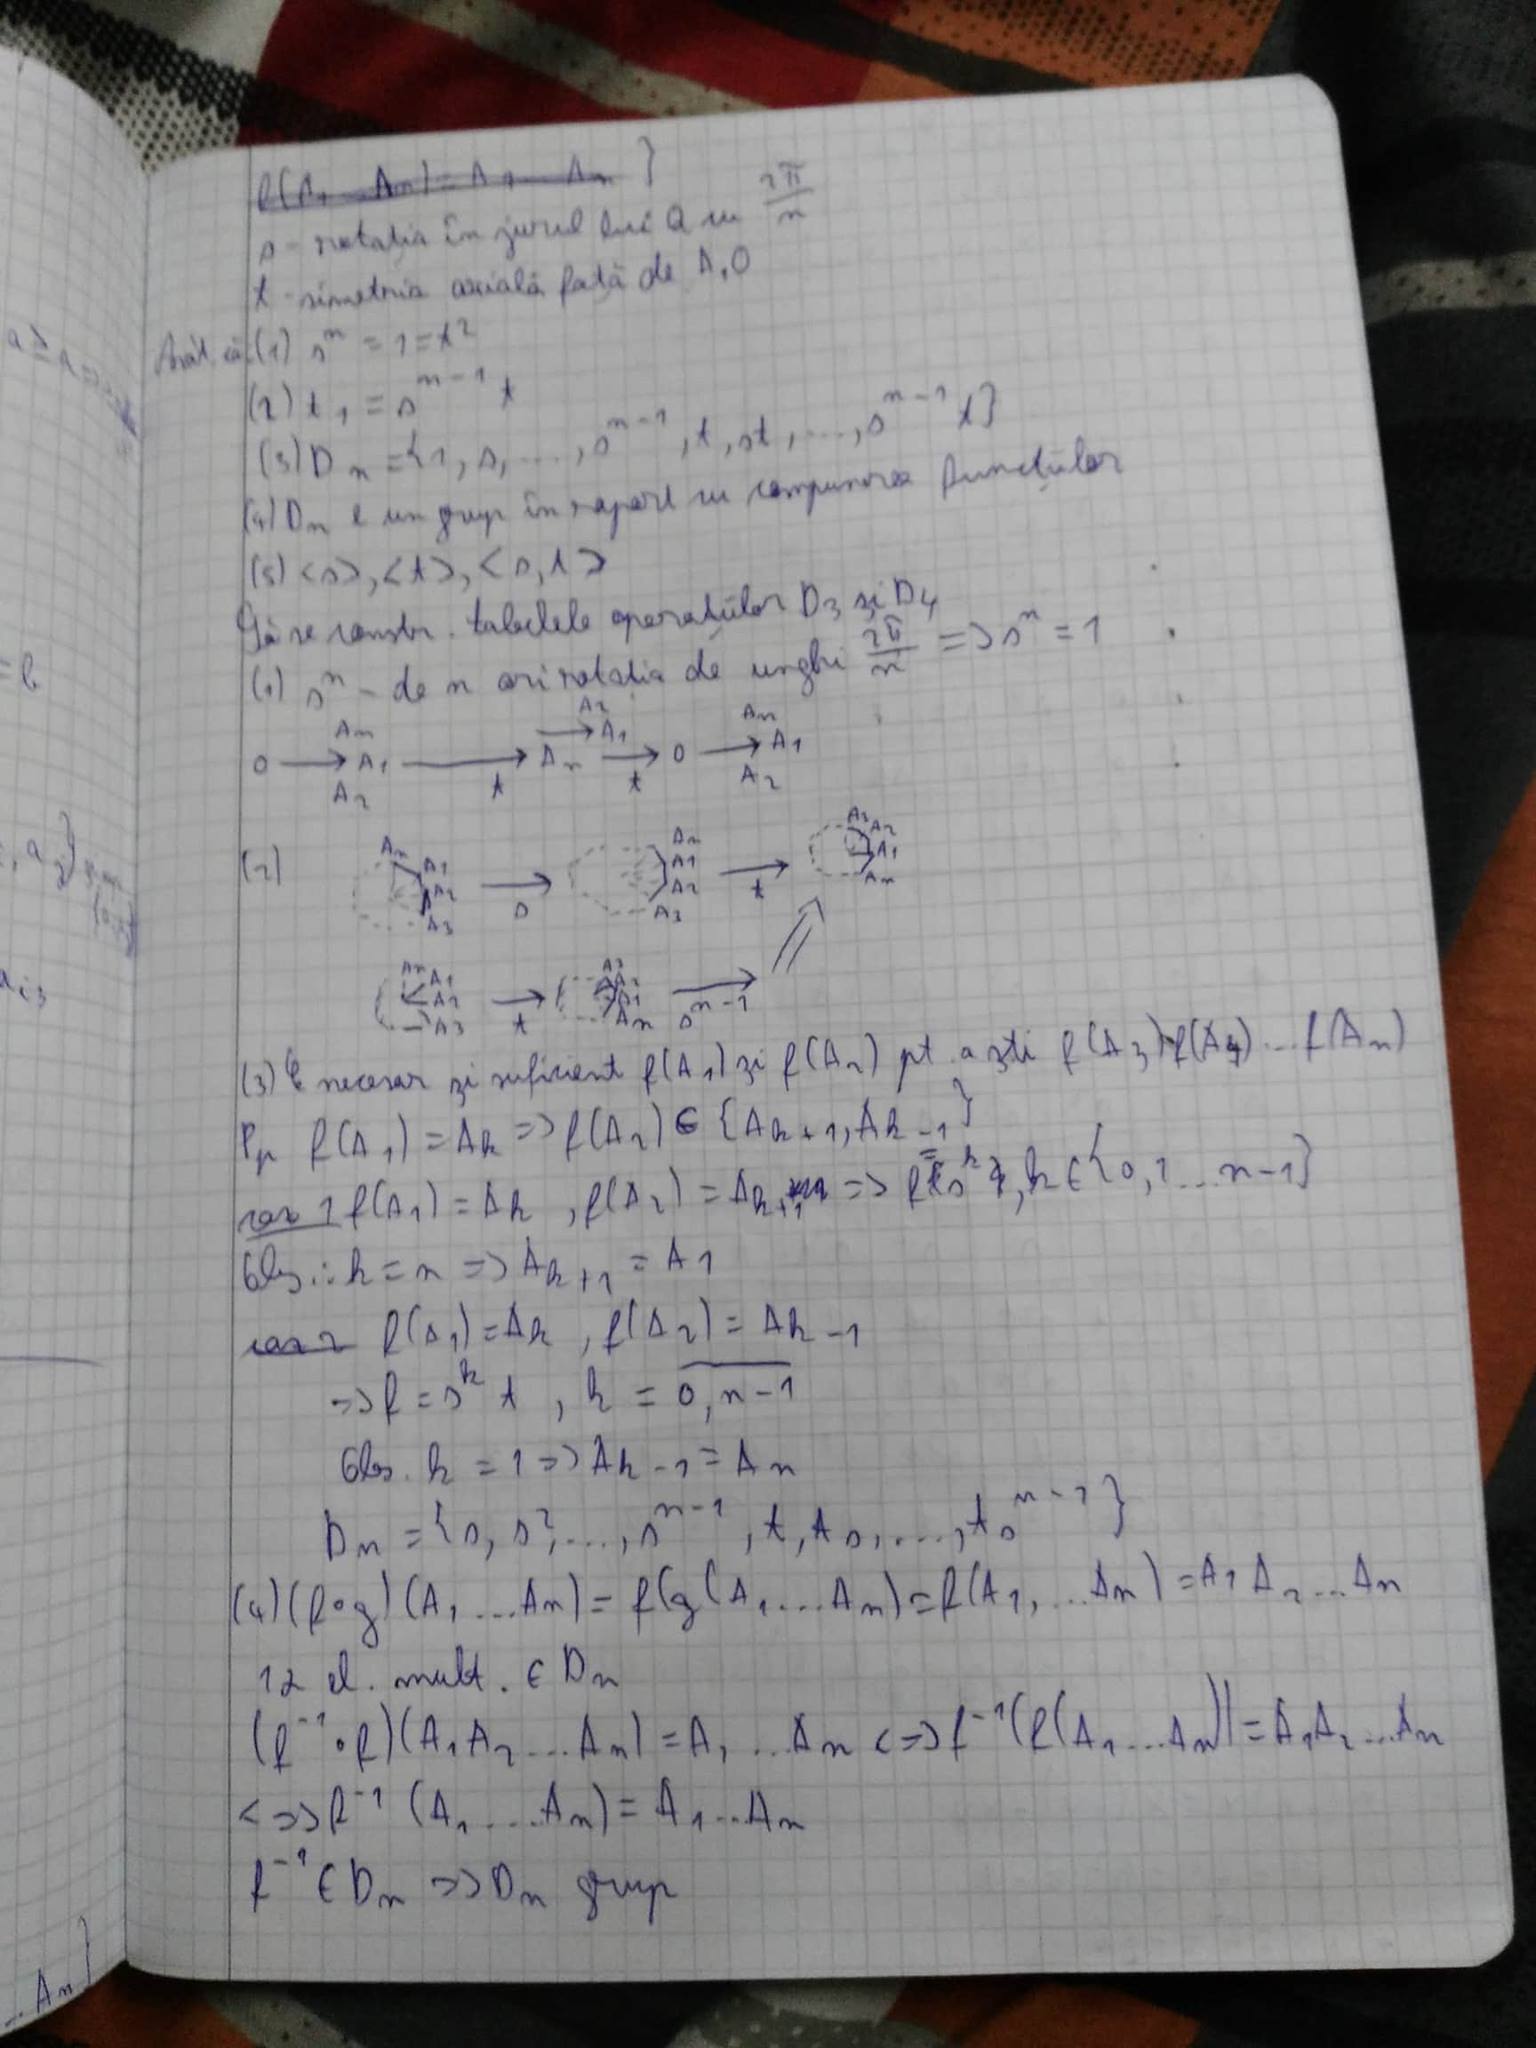 f(A1 ... An) = A1 ... An }
s - rotația în jurul lui O cu 2π/n
t - simetria axială față de A1O
Arăt. că: (1) s^n = 1 = t^2
(2) t s = s^(n-1) t
(3) Dn = {1, s, ..., s^(n-1), t, st, ..., s^(n-1) t}
(4) Dn e un grup în raport cu compunerea funcțiilor
(5) <s>, <t>, <s, t>
Să se constr. tabelele operațiilor D3 și D4
(1) s^n - de n ori rotația de unghi 2π/n => s^n = 1
An A2 An
O → A1 →t An → A1 →t O → A1
A2 A2
(2) An A1 A2 A3 →s An A1 A2 A3 →t A3 A2 A1 An
An A1 A2 A3 →t A3 A2 A1 An →s^(n-1)
(3) E necesar și suficient f(A1) și f(A2) pt. a ști f(A3), f(A4) ... f(An)
Pp f(A1) = Ak => f(A2) ∈ {Ak+1, Ak-1}
caz 1 f(A1) = Ak, f(A2) = Ak+1 => f = s^k, k ∈ {0, 1 ... n-1}
Obs.: k = n => Ak+1 = A1
caz 2 f(A1) = Ak, f(A2) = Ak-1
=> f = s^k t, k = 0, n-1
Obs. k = 1 => Ak-1 = An
Dn = {s, s^2, ..., s^(n-1), t, ts, ..., ts^(n-1)}
(4) (f∘g)(A1 ... An) = f(g(A1 ... An) = f(A1, ... An) = A1 A2 ... An
12 el. mult. ∈ Dn
(f^-1 ∘ f)(A1 A2 ... An) = A1 ... An <=> f^-1(f(A1 ... An)) = A1 A2 ... An
<=> f^-1 (A1 ... An) = A1 ... An
f^-1 ∈ Dn => Dn grup